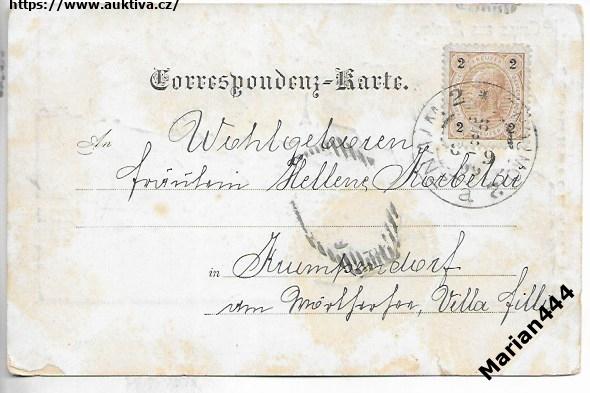 https://www.auktiva.cz/
2 2
2 2
Correspondenz-Karte.
An Wohlgeboren
Fräulein Hellene
in Krumpendorf
am Wörthersee, Villa
Marian444